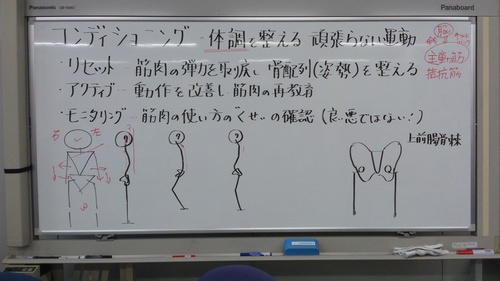 Panasonic
Panaboard
コンディショニング - 体調を整える 頑張らない運動
・リセット - 筋肉の弾力を取り戻し骨配列(姿勢)を整える
・アクティブ - 動作を改善し筋肉の再教育
・モニタリング - 筋肉の使い方の"くせ"の確認(良・悪ではない!)
主動筋
拮抗筋
右
左
上前腸骨棘